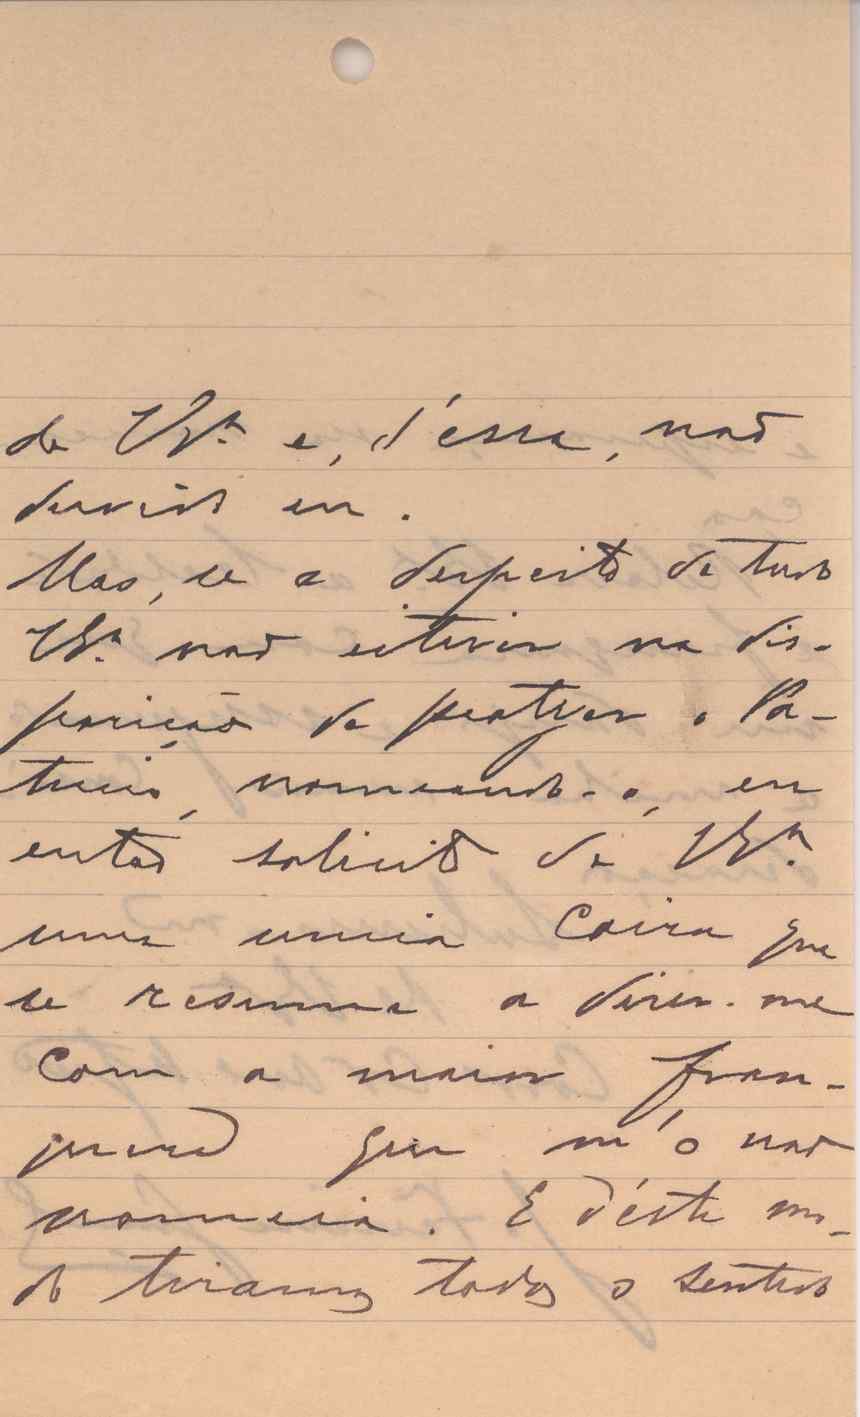 de VEx.ª e, d'essa, não
duvido eu.
Mas, se a despeito de tudo
VEx.ª não estiver na dis-
posição de proteger o Pa-
tricio, nomeando-o, eu
então solicito de VEx.ª
uma unica coisa que
se resume a dizer-me
com a maior fran-
queza que m'o não
nomeia. E d'éste mo-
do tiramos todos o sentido